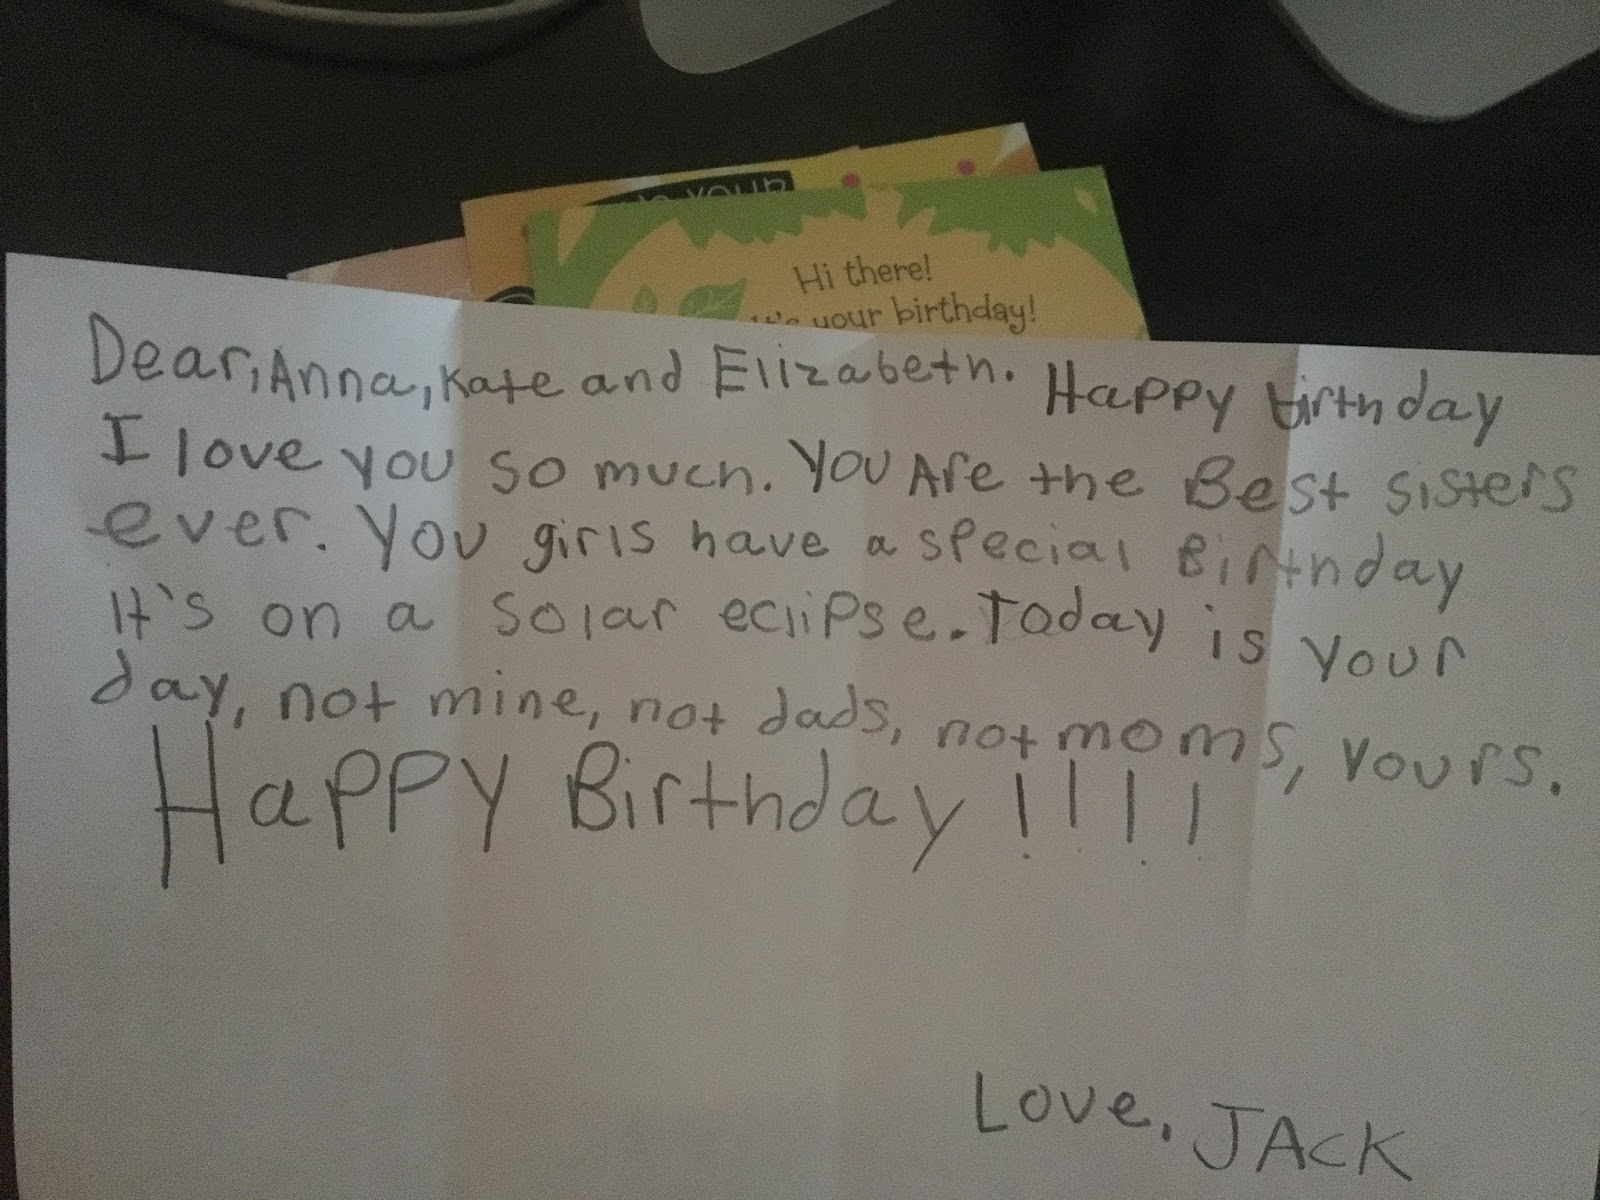 your
Hi there!
It's your birthday!
Dear, Anna, Kate and Elizabeth. Happy birthday
I love you so much. You Are the Best sisters
ever. You girls have a special Birthday
It's on a solar eclipse. Today is your
day, not mine, not dads, not moms, yours.
Happy Birthday!!!!
Love, JAcK